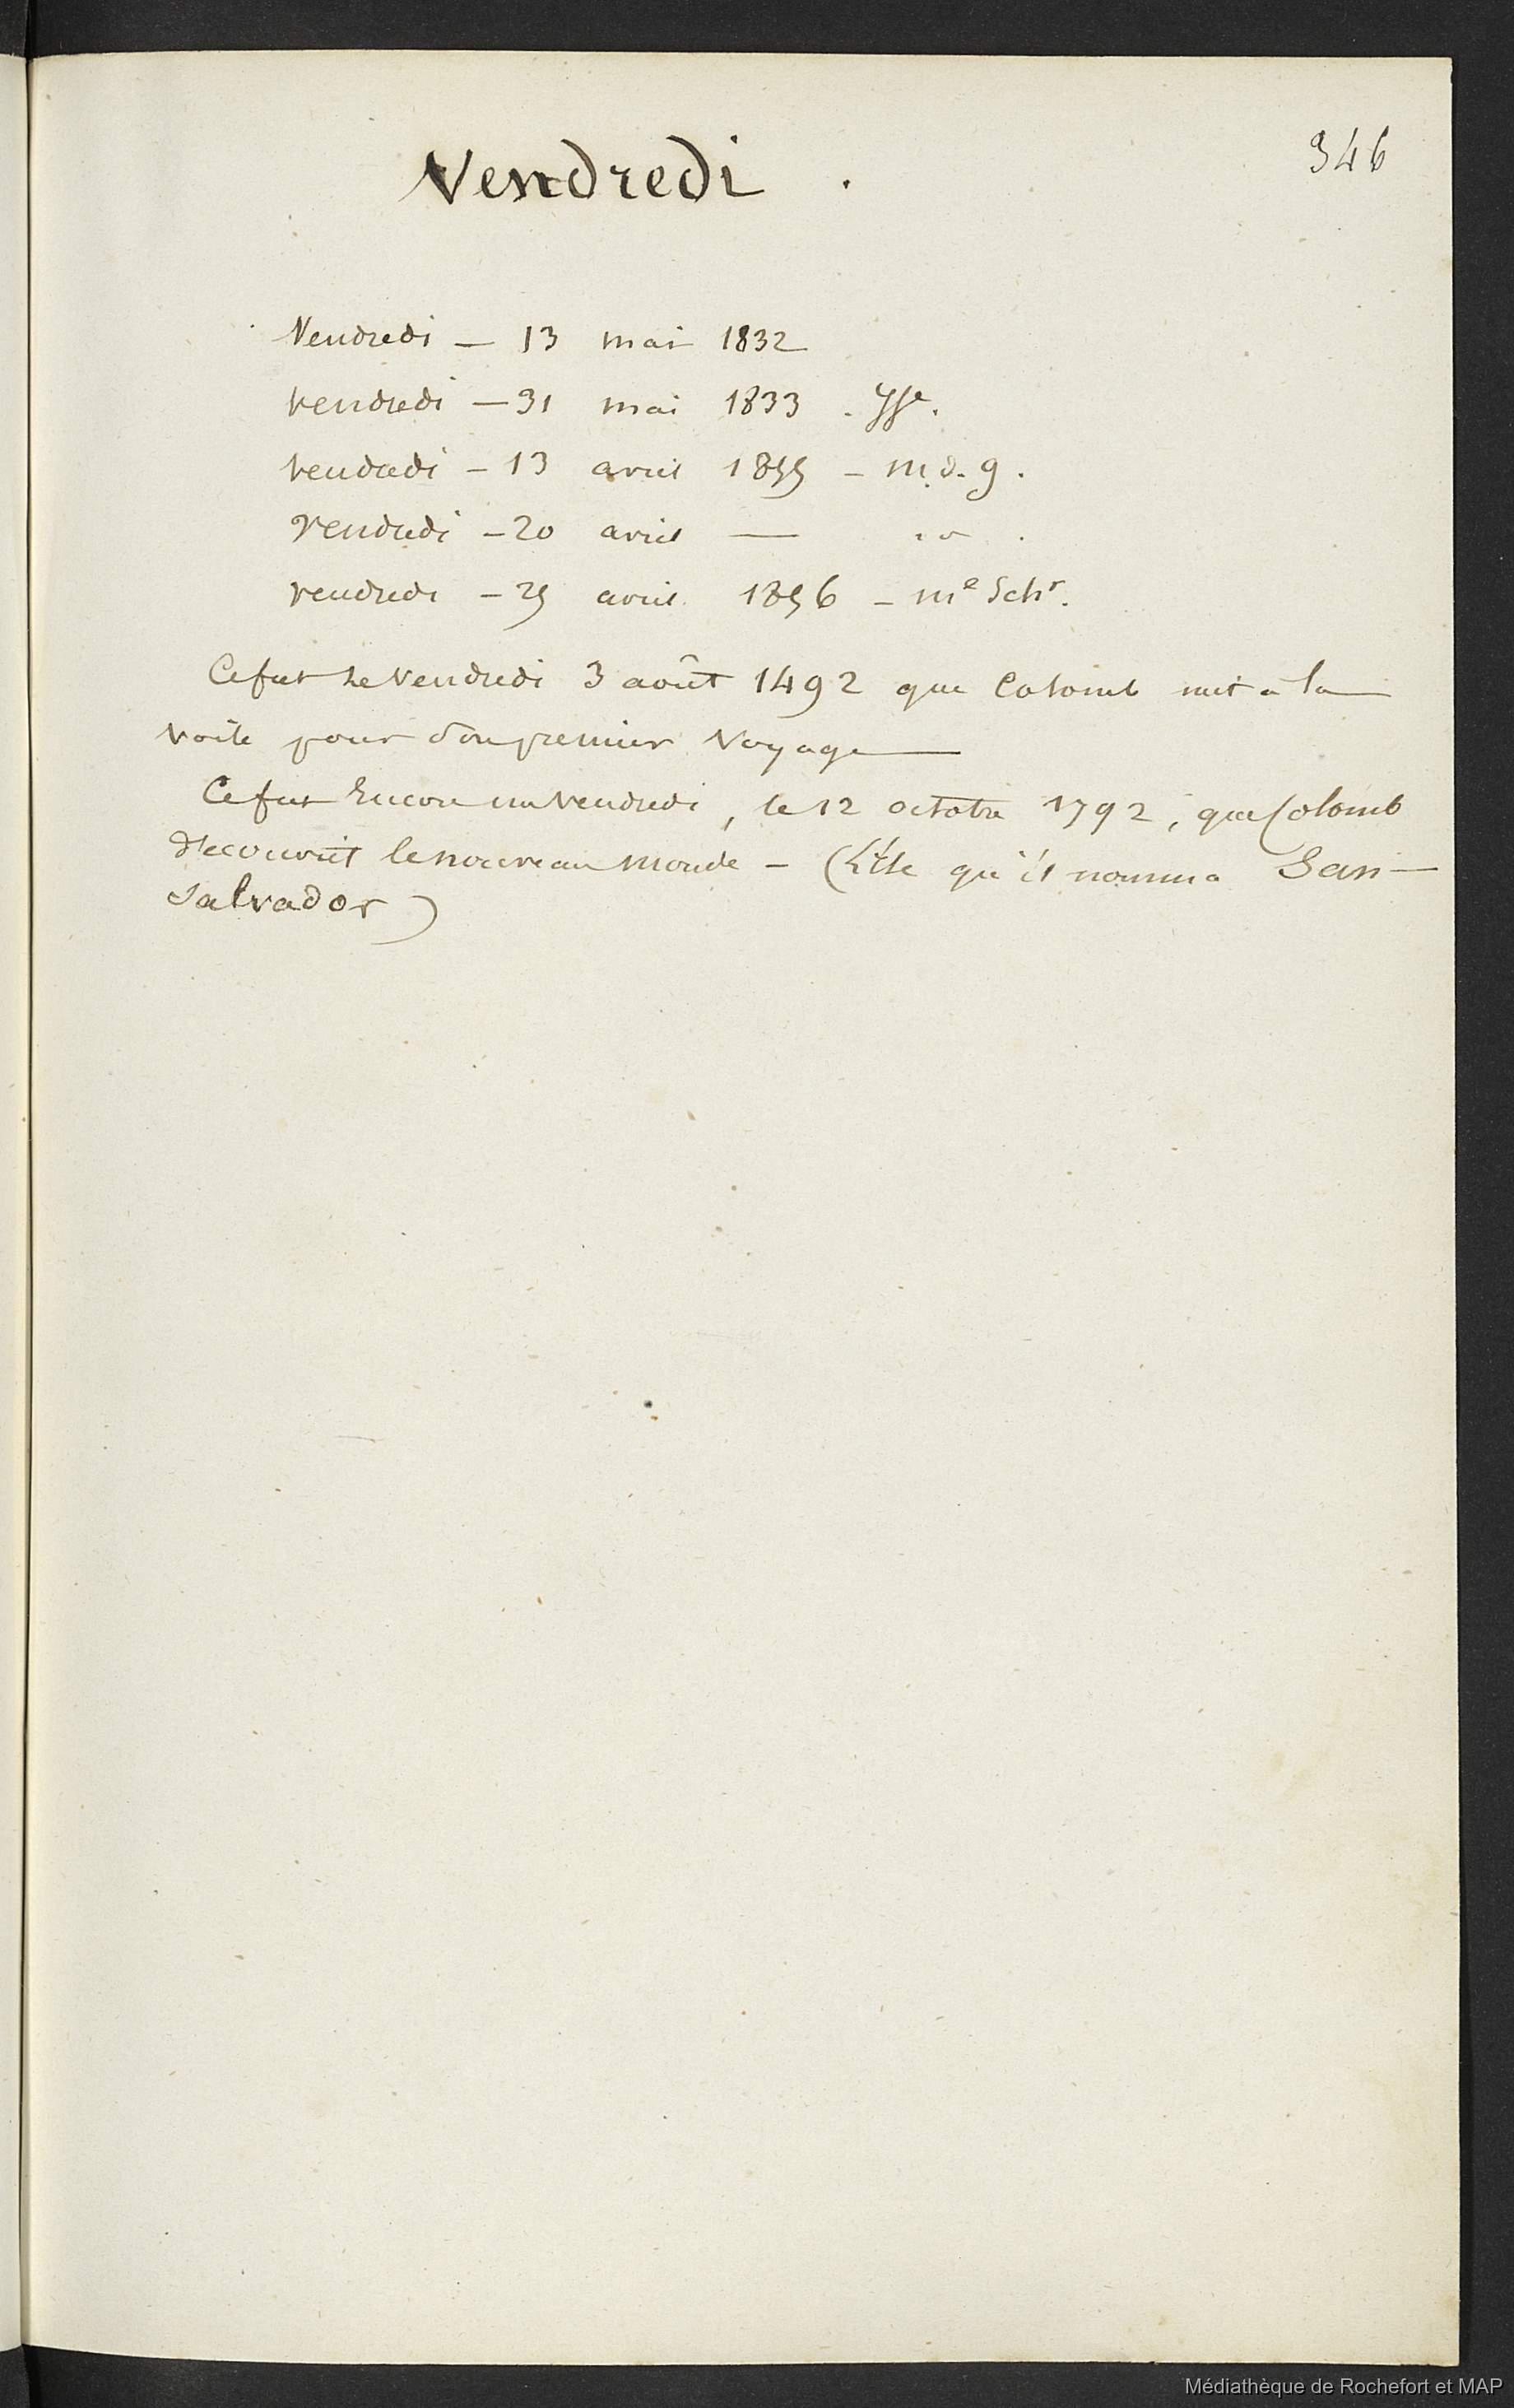 346
Vendredi .
Vendredi — 13 mai 1832
vendredi — 31 mai 1833 .
vendredi — 13 avril 1855 — m. d. g.
vendredi — 20 avril —
vendredi — 25 avril 1856 — me Schr.
Ce fut le vendredi 3 août 1492 que Colomb mit à la
voile pour son premier voyage
Ce fut encore un vendredi, le 12 octobre 1792, que Colomb
découvrit le nouveau monde — (L'île qu'il nomma San-
Salvador)
Médiathèque de Rochefort et MAP